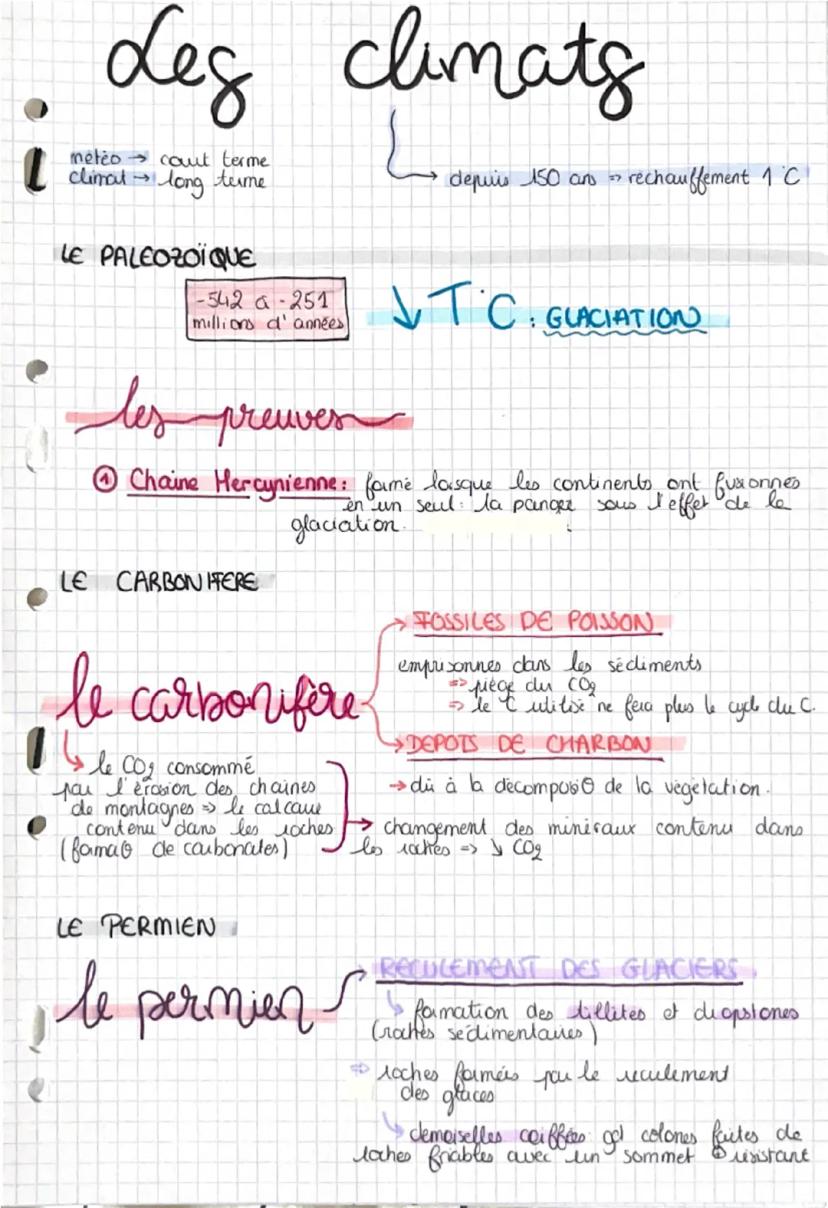 Les climats
météo → court terme
climat → long terme
depuis 150 ans => rechauffement 1°C
LE PALEOZOÏQUE
-542 à -251
millions d'années
↓ T°C : GLACIATION
les preuves
① Chaine Hercynienne : formé lorsque les continents ont fusionnés
en un seul : la pangée sous l'effet de la
glaciation.
LE CARBONIFERE
→ FOSSILES DE POISSON
emprisonnés dans les sédiments
=> piège du CO2
=> le C utilisé ne fera plus le cycle du C.
le carbonifère
→ DEPOTS DE CHARBON
→ dû à la décomposiΘ de la végétation.
↳ le CO2 consommé
par l'érosion des chaines
de montagnes => le calcaire
contenu dans les roches
(formaΘ de carbonates)
→ changement des minéraux contenu dans
les roches => ↘ CO2
LE PERMIEN
le permien
RECULEMENT DES GLACIERS.
↳ formation des tillites et dropstones
(roches sédimentaires)
=> roches formées par le reculement
des glaces
↳ demoiselles coiffées colones faites de
roches friables avec un sommet ⊕ résistant